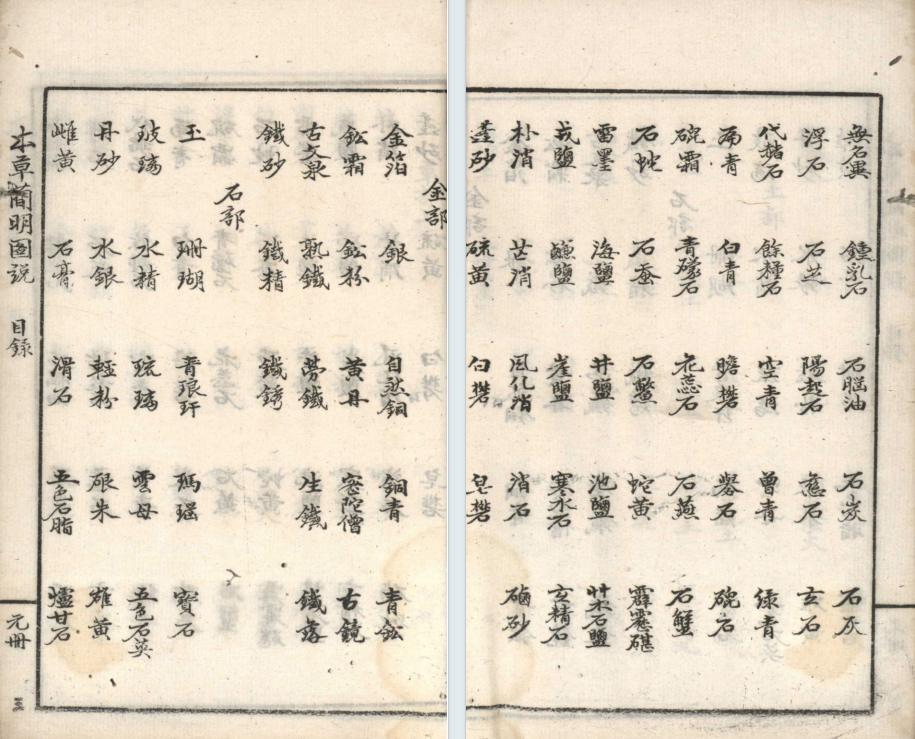 金部
金箔 銀 自然銅 銅青 青鈆
鈆霜 鈆粉 黄丹 密陀僧 古鏡
古文泉 熟鐵 勞鐵 生鐵 鐵落
鐵砂 鐵精 鐵銹
石部
玉 珊瑚 青琅玕 瑪瑙 寶石
玻璃 水精 琉璃 雲母 五色石英
丹砂 水銀 輕粉 銀朱 雄黄
雌黄 石膏 滑石 五色石脂 爐甘石
本草簡明図説 目錄 元冊 三
無名異 鍾乳石 石脳油 石炭 石灰
浮石 石芝 陽起石 慈石 玄石
代赭石 餘糧石 空青 曽青 緑青
扁青 白青 膽礬 礜石 砒石
砒霜 青礞石 花蕊石 石燕 石蟹
石蛇 石蚕 石鱉 蛇黄 霹靂碪
雷墨 海鹽 井鹽 池鹽 光石鹽
戎鹽 鹵鹽 崖鹽 寒水石 玄精石
朴消 芒消 風化消 消石 硇砂
蓬砂 硫黄 白礬 皂礬